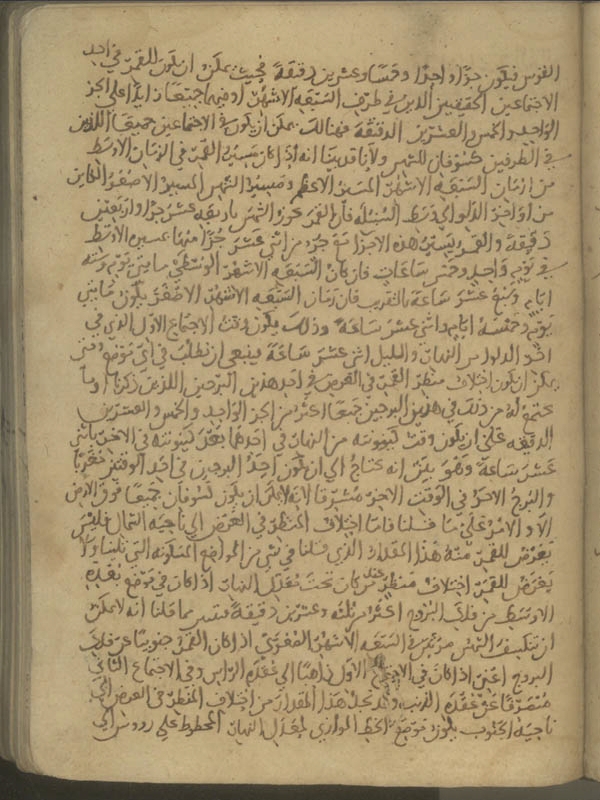 القوس فيكون جزءا واحدا وخمسا وعشرين دقيقة فحيث يمكن ان يكون للقمر في احد
الاجتماعين الحقيقيين الذين في طرفي السبعة الاشهر او فيهما جميعا زايدا على الجزء
الواحد والخمس والعشرين الدقيقة فهنالك يمكن ان يكون في الاجتماعين جميعا اللذين
في الطرفين كسوفان للشمس ولانا قد بينا انه اذا كان مسير القمر في الزمان الاوسط
من ازمان السبعة الاشهر المسير الاعظم ومسير الشمس المسير الاصغر الكاين
من اواخر الدلو الى وسط السنبلة فان القمر يحوز الشمس باربعة عشر جزءا واربعين
دقيقة والقمر يسير هذه الاجزا مع جزء من اثني عشر جزءا منها بمسيره الاوسط
في يوم واحد وخمس ساعات فاذ كان السبعة الاشهر الوسطى مايتي يوم وستة
ايام وسبع عشرة ساعة بالتقريب فان زمان السبعة الاشهر الاصغر يكون مايتي
يوم وخمسة ايام واثني عشر ساعة وذلك يكون وقت الاجتماع الاول الذي في
اخر الدلو من النهار والليل اثني عشر ساعة ينبغي ان نطلب في اي موضع ومتى
يمكن ان يكون اختلاف منظر القمر في العرض في احد هذين البرجين اللذين ذكرنا او ما
يجتمع له من ذلك في هذين البرجين جميعا اكثر من الجزء الواحد والخمس والعشرين
الدقيقة على ان يكون وقت كينونته من النهار في احدهما بعد كينونته في الاخر باثني
عشر ساعة وهو بين انه يحتاج الى ان يكون احد البرجين في احد الوقتين مغربا
والبرج الاخر في الوقت الاخر مشرقا لانه لا يمكن ان يكون كسوفان جميعا فوق الارض
الا والامر على ما قلنا فاما اختلاف المنظر في العرض الى ناحية الشمال فليس
يعرض للقمر منه هذا المقدار الذي قلنا في شي من المواضع المسكونة التي تلينا ولا
يعرض للقمر اختلاف منظر عند من كان تحت معدل النهار اذا كان في موضع بعده
الاوسط من فلك البروج اكثر من ثلثة وعشرين دقيقة فتبين مما قلنا انه لا يمكن
ان ينكسف الشمس مرتين في السبعة الاشهر الصغرى اذا كان القمر جنوبيا عن فلك
البروج اعني اذا كان في الاجتماع الاول ذاهبا الى عقدة الراس وفي الاجتماع الثاني
منصرفا عن عقدة الذنب وقد نجد هذا المقدار من اختلاف المنظر في العرض الى
ناحية الجنوب يكون موضع الخط الموازي لمعدل النهار المخطوط على رووس الى